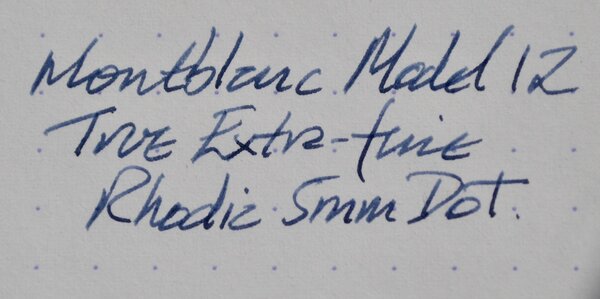 Montblanc Model 12
True Extra-fine
Rhodia 5mm Dot.